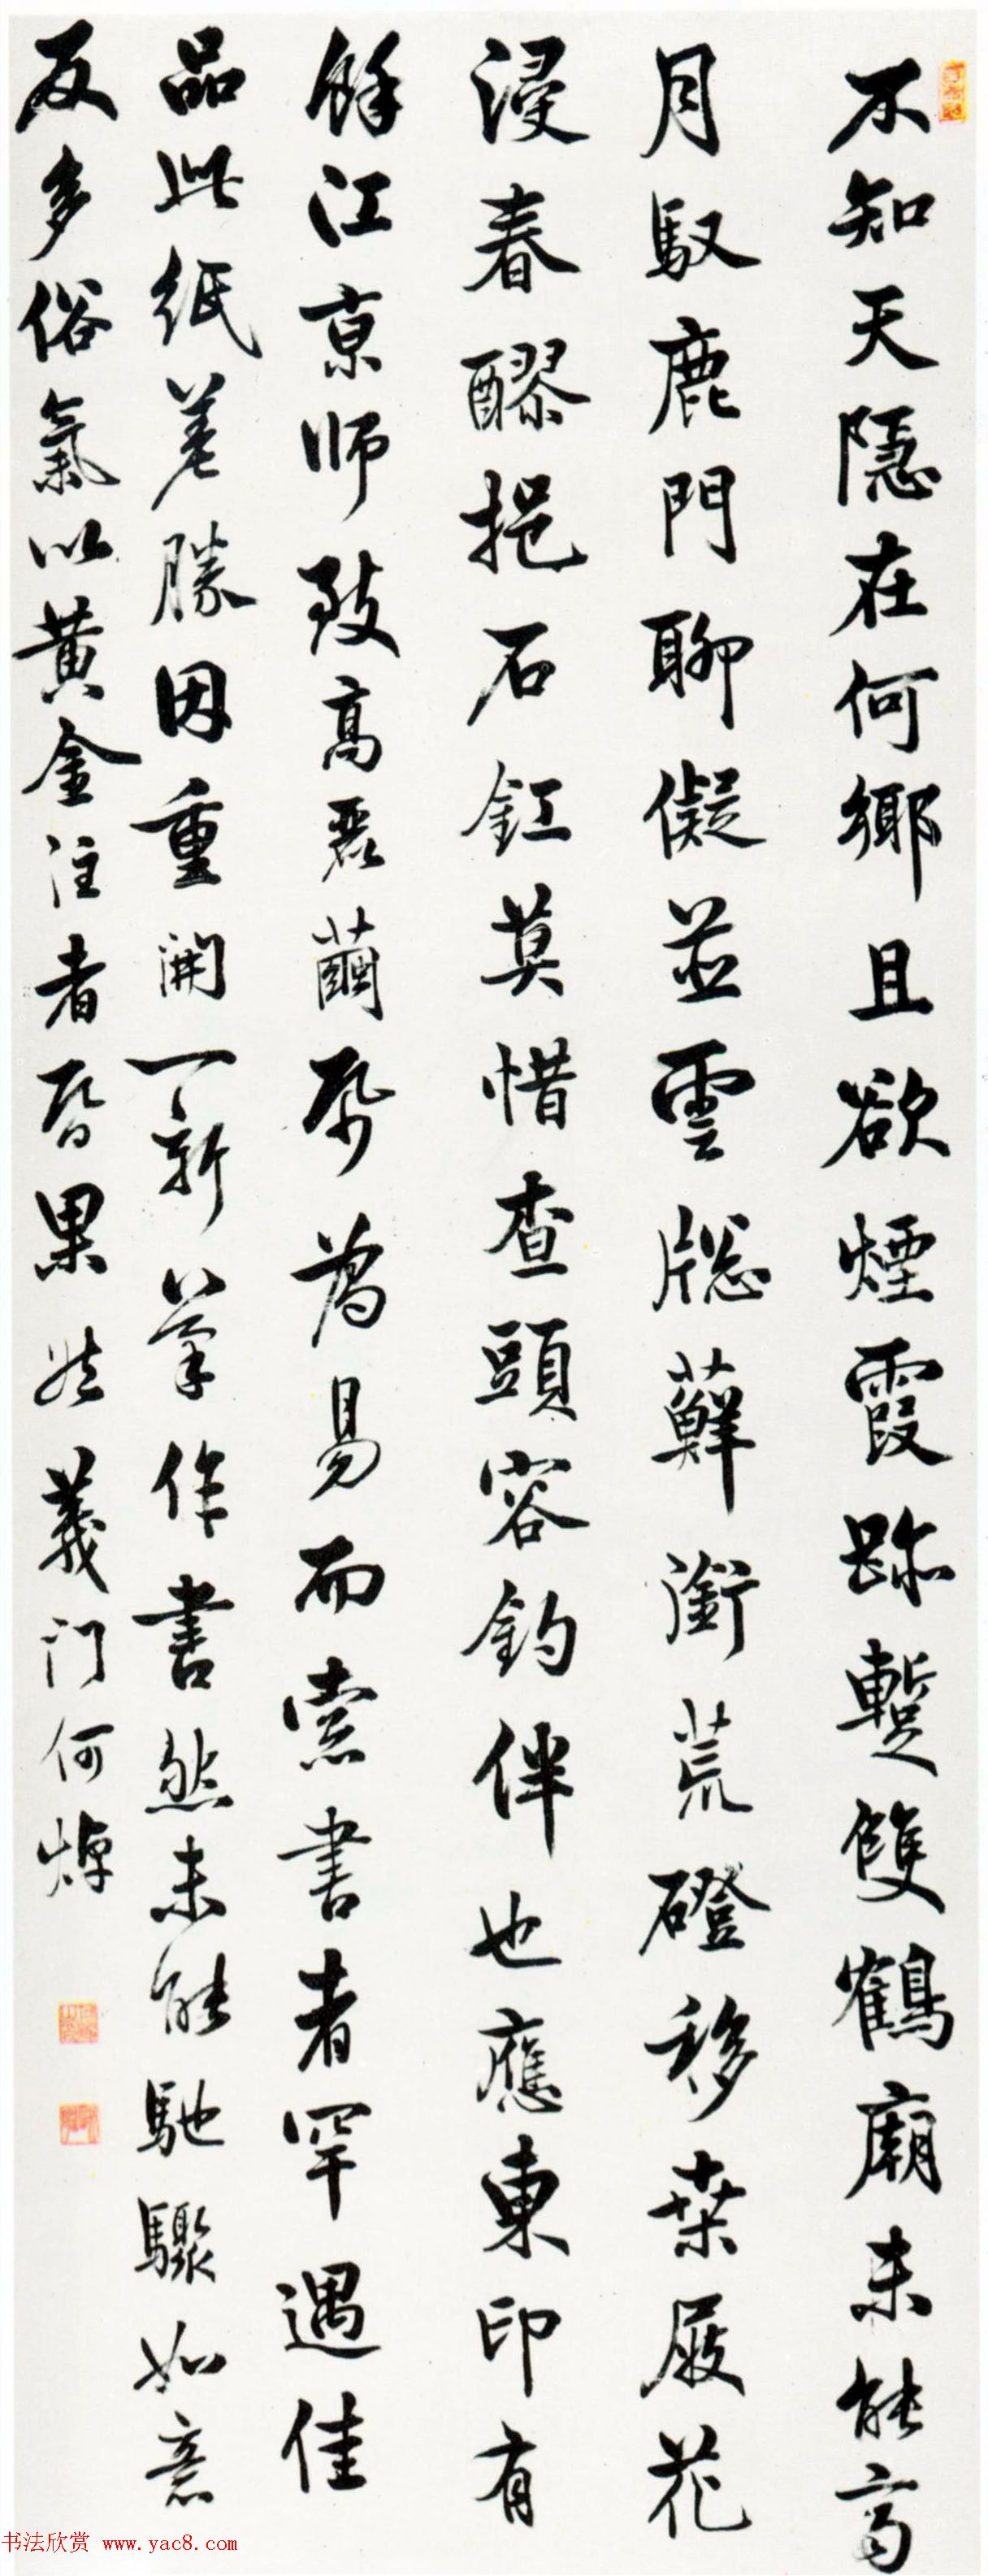 不知天隱在何鄉且欲煙霞跡暫雙鶴廟未能齊
月馭鹿門聊儗並雲牎蘚銜荒磴移桒屐花
浸春醪挹石釭莫惜查頭容釣伴也應東印有
餘江京師致高麗繭帋為易而索書者罕遇佳
品此紙差勝因重開一新筆作書然未能馳驟如意
反多俗氣以黃金注者昏果然義門何焯
书法欣赏 www.yac8.com